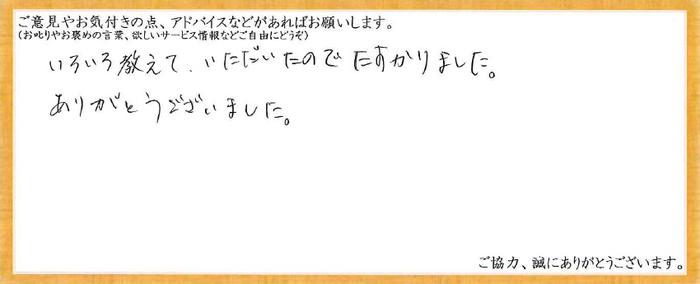 ご意見やお気付きの点、アドバイスなどがあればお願いします。
(お叱りやお褒めの言葉、欲しいサービス情報などご自由にどうぞ)
いろいろ教えて、いただいたのでたすかりました。
ありがとうございました。
ご協力、誠にありがとうございます。